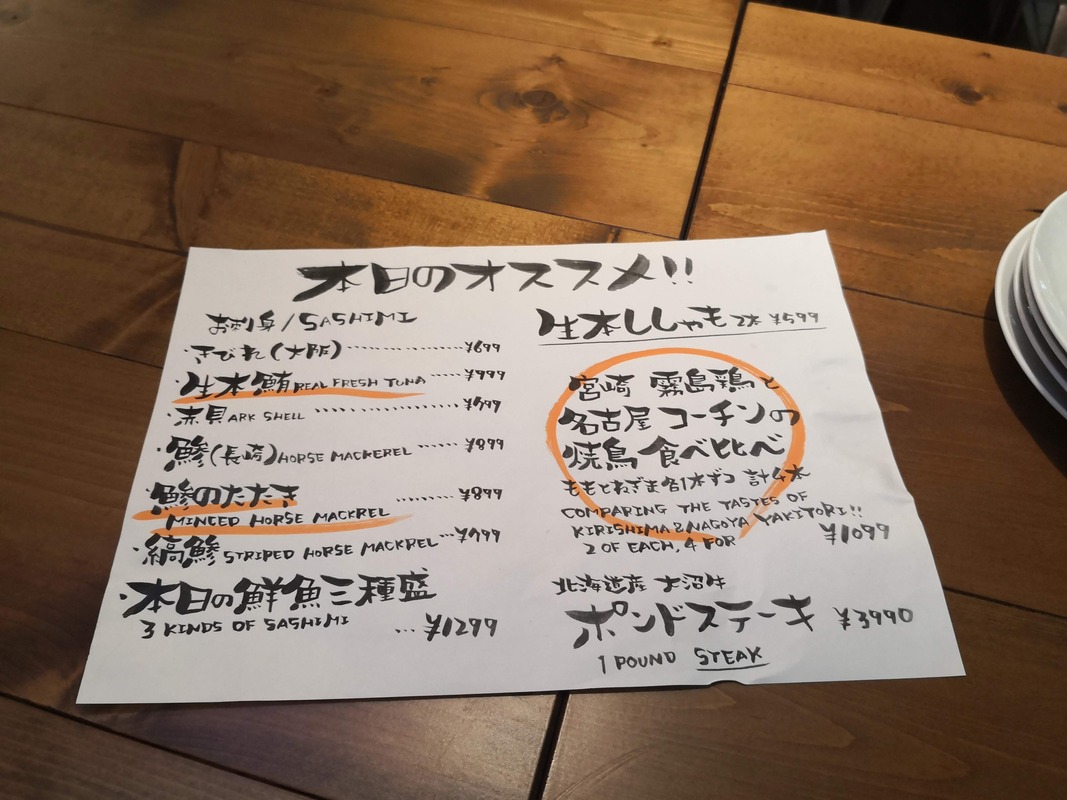 本日のオススメ!!
お刺身/SASHIMI
・きびれ(大阪) ¥699
・生本鮪 REAL FRESH TUNA ¥999
・赤貝 ARK SHELL ¥699
・鯵(長崎) HORSE MACKEREL ¥899
・鯵のたたき ¥899
MINCED HORSE MACKREL
・縞鯵 STRIPED HORSE MACKREL ¥999
・本日の鮮魚三種盛
3 KINDS OF SASHIMI ¥1299
生本ししゃも 2本 ¥599
宮崎 霧島鶏と
名古屋コーチンの
焼鳥 食べ比べ
ももとねぎま各1本ずつ 計4本
COMPARING THE TASTES OF
KIRISHIMA & NAGOYA YAKITORI!!
2 OF EACH, 4 FOR ¥1099
北海道産 大沼牛
ポンドステーキ ¥3990
1 POUND STEAK